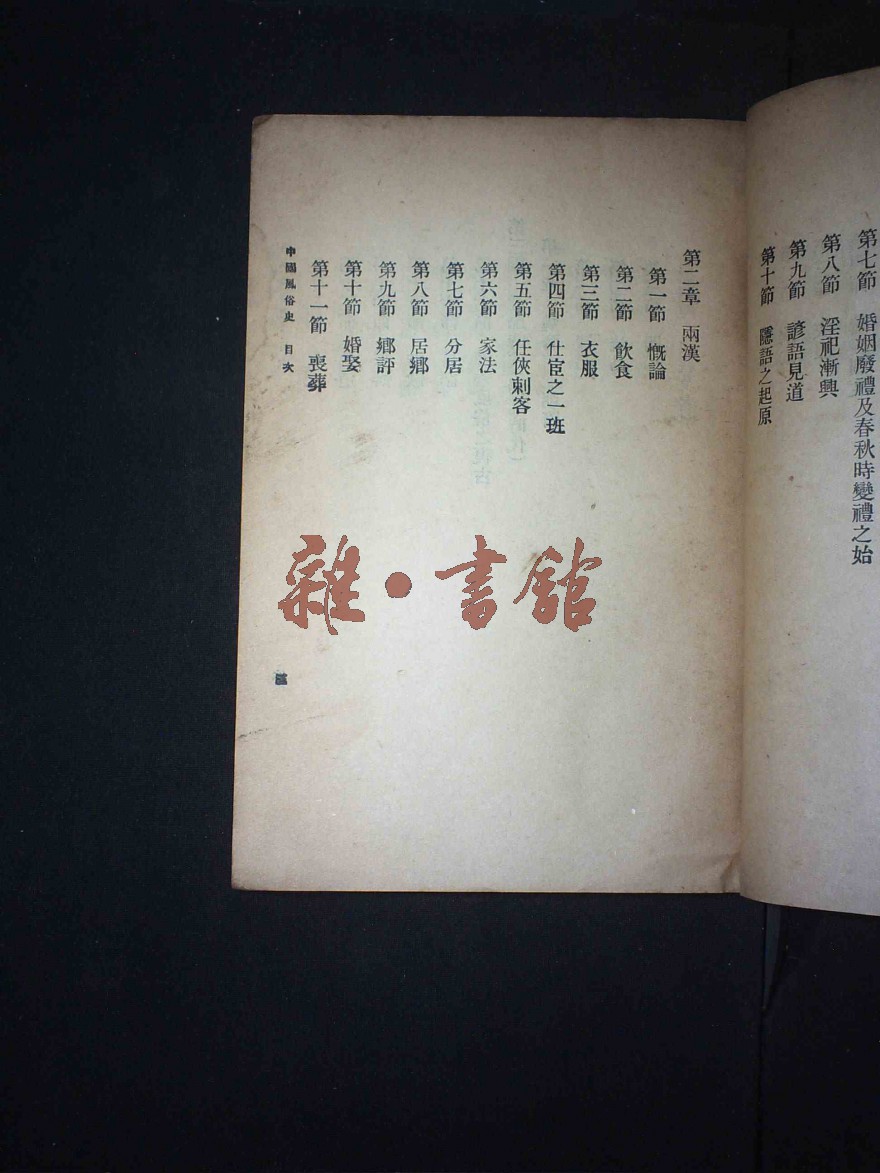 第七節 婚姻廢禮及春秋時變禮之始
第八節 淫祀漸興
第九節 諺語見道
第十節 隱語之起原
第二章 兩漢
第一節 慨論
第二節 飲食
第三節 衣服
第四節 仕宦之一班
第五節 任俠刺客
第六節 家法
第七節 分居
第八節 居鄉
第九節 鄉評
第十節 婚娶
第十一節 喪葬
中國風俗史 目次
雜·書館